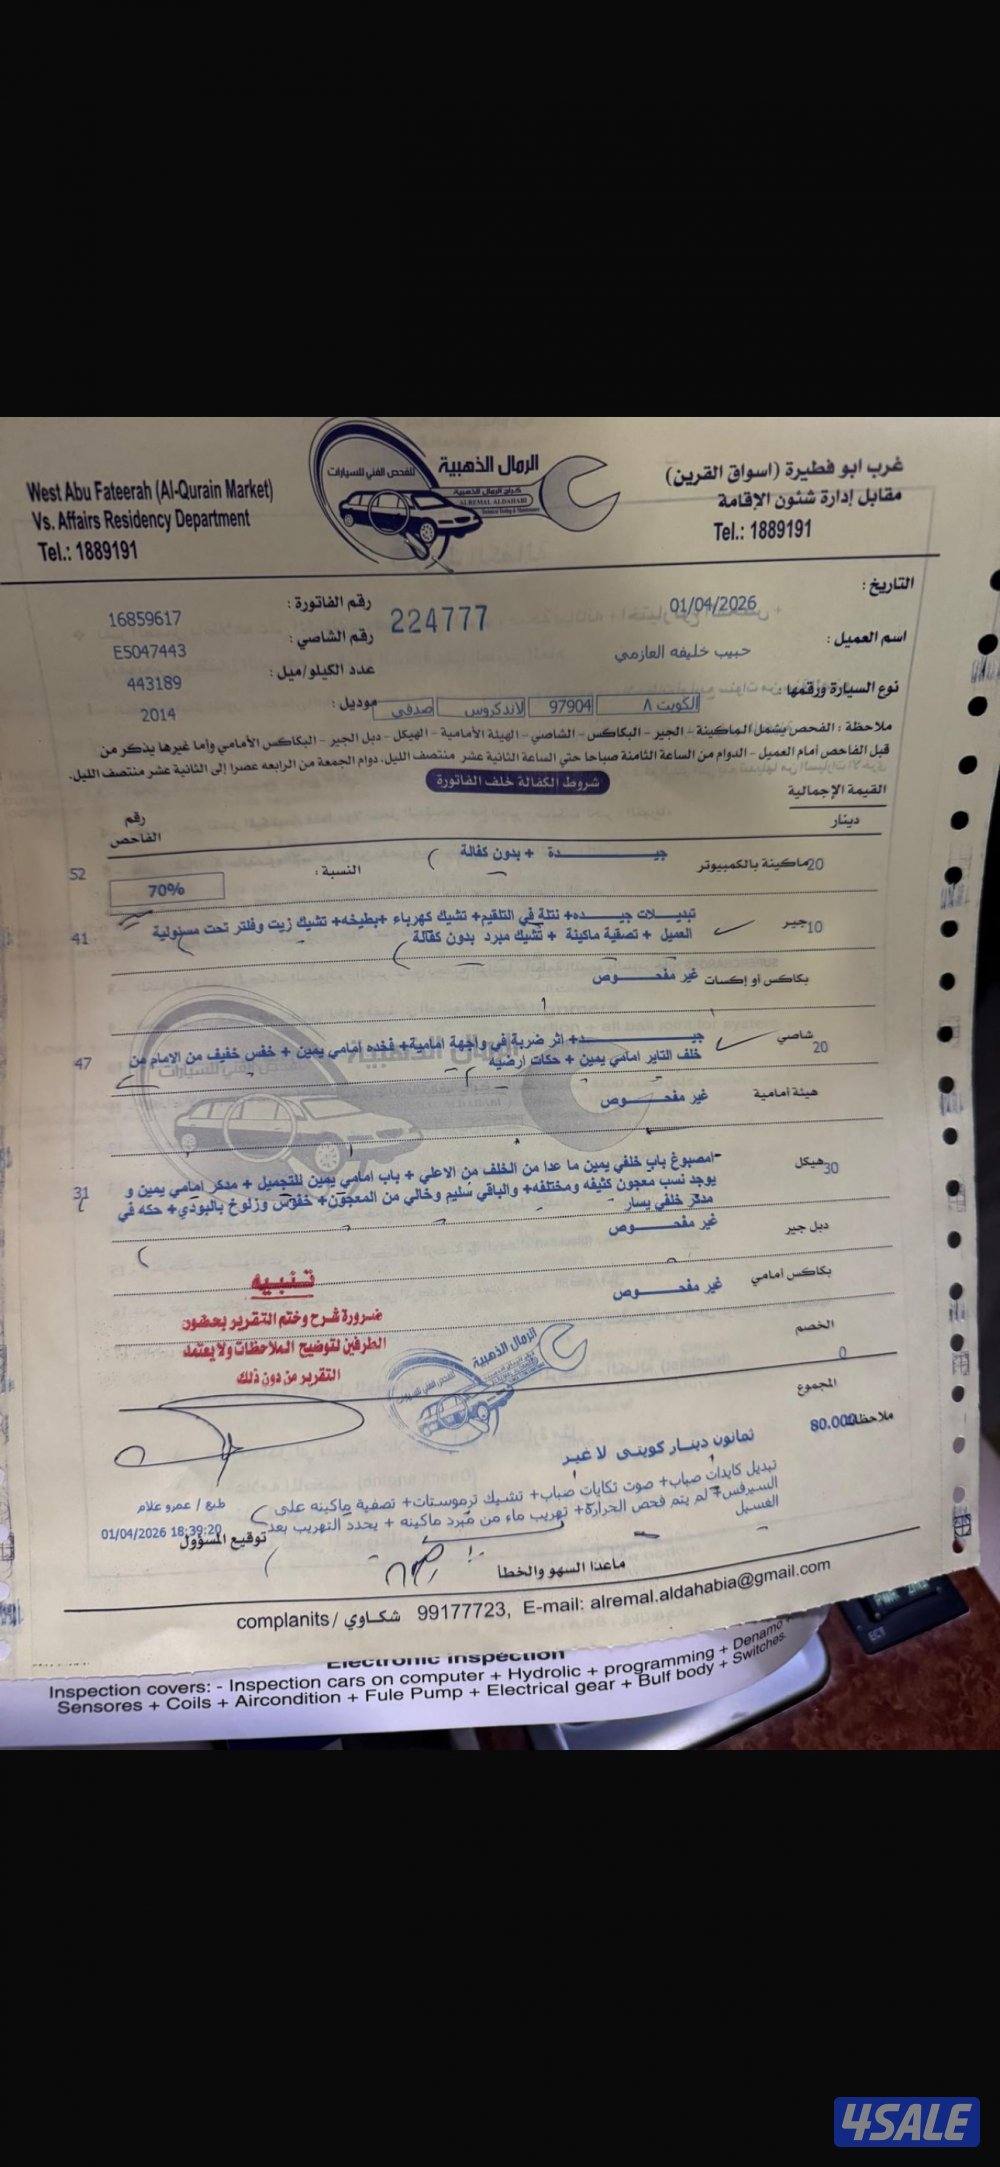 غرب ابو فطيرة (اسواق القرين)
مقابل إدارة شئون الإقامة
Tel.: 1889191
الرمال الذهبية
للفحص الفني للسيارات
كراج الرمال الذهبية
ALREMAL ALDAHABI
West Abu Fateerah (Al-Qurain Market)
Vs. Affairs Residency Department
Tel.: 1889191
التاريخ : 01/04/2026
224777
رقم الفاتورة : 16859617
اسم العميل : حبيب خليفه العازمي
رقم الشاصي : E5047443
نوع السيارة ورقمها : الكويت ٨ 97904 لاندكروس صدفي
عدد الكيلو/ميل : 443189
موديل : 2014
ملاحظة : الفحص يشمل الماكينة - الجير - البكاكس - الشاصي - الهيئة الأمامية - الهيكل - دبل الجير - البكاكس الأمامي وأما غيرها يذكر من
قبل الفاحص أمام العميل - الدوام من الساعة الثامنة صباحا حتي الساعة الثانية عشر منتصف الليل. دوام الجمعة من الرابعه عصرا إلى الثانية عشر منتصف الليل.
شروط الكفالة خلف الفاتورة
القيمة الإجمالية
دينار
رقم الفاحص
20 ماكينة بالكمبيوتر جيـــدة + بدون كفالة
النسبة : 70% 52
10 جير تبديلات جيـــده+ نتلة في التلقيم+ تشيك كهرباء +بطيخه+ تشيك زيت وفلتر تحت مسئولية
العميل + تصفية ماكينة + تشيك مبرد بدون كفالة 41
بكاكس أو إكسات غير مفحـــوص
20 شاصي جيـــد+ اثر ضربة في واجهة امامية+ فخده امامي يمين + خفس خفيف من الامام من
خلف التاير امامي يمين + حكات ارضيه 47
هيئة أمامية غير مفحـــوص
30 هيكل -امصبوغ باب خلفي يمين ما عدا من الخلف من الاعلي + باب امامي يمين للتجميل + مدكر امامي يمين و
يوجد نسب معجون كثيفه ومختلفه+ والباقي سليم وخالي من المعجون+ خفوس وزلوخ بالبودي+ حكه في
مدكر خلفي يسار 31
دبل جير غير مفحـــوص
بكاكس امامي غير مفحـــوص
تنبيه
ضرورة شرح وختم التقرير بحضور
الطرفين لتوضيح الملاحظات ولا يعتمد
التقرير من دون ذلك
الخصم 0
الرمال الذهبية
المجموع 80.000
ثمانون دينار كويتى لا غير
ملاحظات
تبديل كايدات صباب+ صوت تكايات صباب+ تشيك ترموستات+ تصفية ماكينه على
السيرفس+ لم يتم فحص الحرارة+ تهريب ماء من مبرد ماكينه + يحدد التهريب بعد
الغسيل
طبع / عمرو علام
01/04/2026 18:39:20
توقيع المسؤول
ماعدا السهو والخطأ
complanits / شكاوي 99177723, E-mail: alremal.aldahabia@gmail.com
Electronic Inspection
Inspection covers: - Inspection cars on computer + Hydrolic + programming + Denamo +
Sensores + Coils + Aircondition + Fule Pump + Electrical gear + Bulf body + Switches.
4SALE